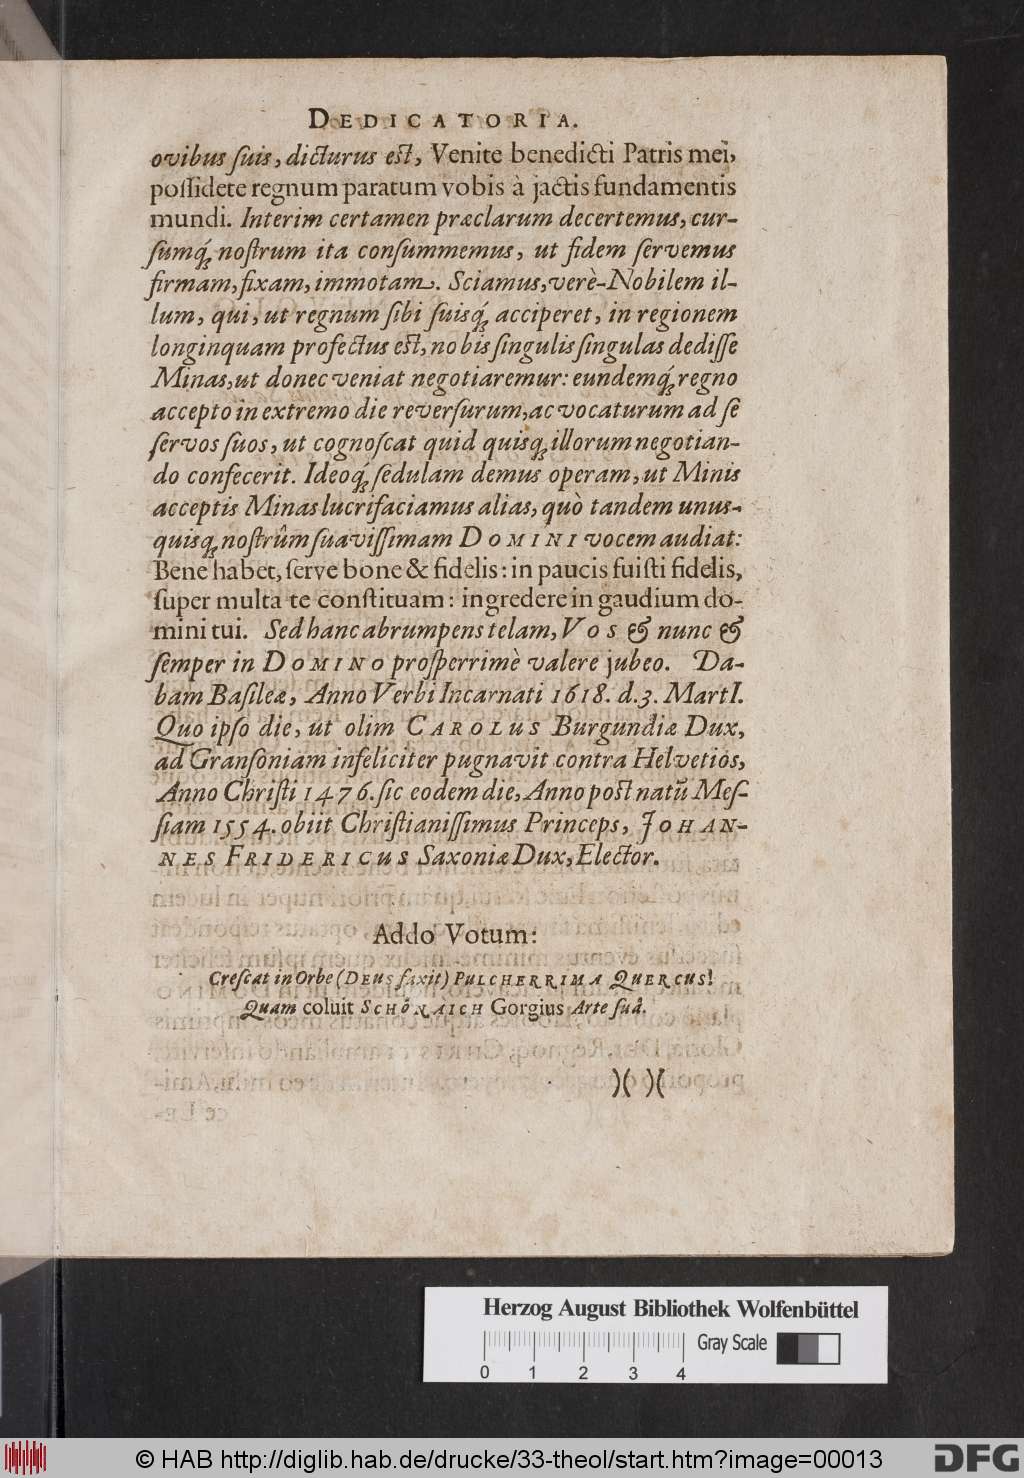 DEDICATORIA.
ovibus ſuis, dicturus eſt, Venite benedicti Patris mei,
poſſidete regnum paratum vobis à jactis fundamentis
mundi. Interim certamen præclarum decertemus, cur-
ſumq́; noſtrum ita conſummemus, ut fidem ſervemus
firmam, fixam, immotam. Sciamus, verè-Nobilem il-
lum, qui, ut regnum ſibi ſuisq́; acciperet, in regionem
longinquam profectus eſt, nobis ſingulis ſingulas dediſſe
Minas, ut donec veniat negotiaremur: eundemq́; regno
accepto in extremo die reverſurum, ac vocaturum ad ſe
ſervos ſuos, ut cognoſcat quid quisq; illorum negotian-
do confecerit. Ideoq́; ſedulam demus operam, ut Minis
acceptis Minas lucrifaciamus alias, quò tandem unus-
quisq; noſtrûm ſuaviſſimam DOMINI vocem audiat:
Bene habet, ſerve bone & fidelis: in paucis fuiſti fidelis,
ſuper multa te conſtituam: ingredere in gaudium do-
mini tui. Sed hanc abrumpens telam, VOS & nunc &
ſemper in DOMINO proſperrimè valere jubeo. Da-
bam Baſileæ, Anno Verbi Incarnati 1618. d. 3. MartI.
Quo ipſo die, ut olim CAROLUS Burgundiæ Dux,
ad Granſoniam infeliciter pugnavit contra Helvetios,
Anno Chriſti 1476. ſic eodem die, Anno poſt natũ Meſ-
ſiam 1554. obiit Chriſtianiſſimus Princeps, JOHAN-
NES FRIDERICUS Saxoniæ Dux, Elector.
Addo Votum:
Creſcat in Orbe (DEUS faxit) PULCHERRIMA QUERCUS!
Quam coluit SCHÓNAICH Gorgius Arte ſuâ.
)( )(
Herzog August Bibliothek Wolfenbüttel
Gray Scale
0 1 2 3 4
© HAB http://diglib.hab.de/drucke/33-theol/start.htm?image=00013
DFG